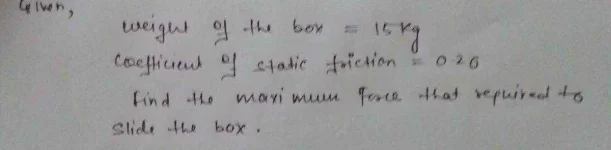 Given,
weight of the box = 15 kg
Coefficient of static friction = 0.26
find the maximum force that required to
Slide the box.